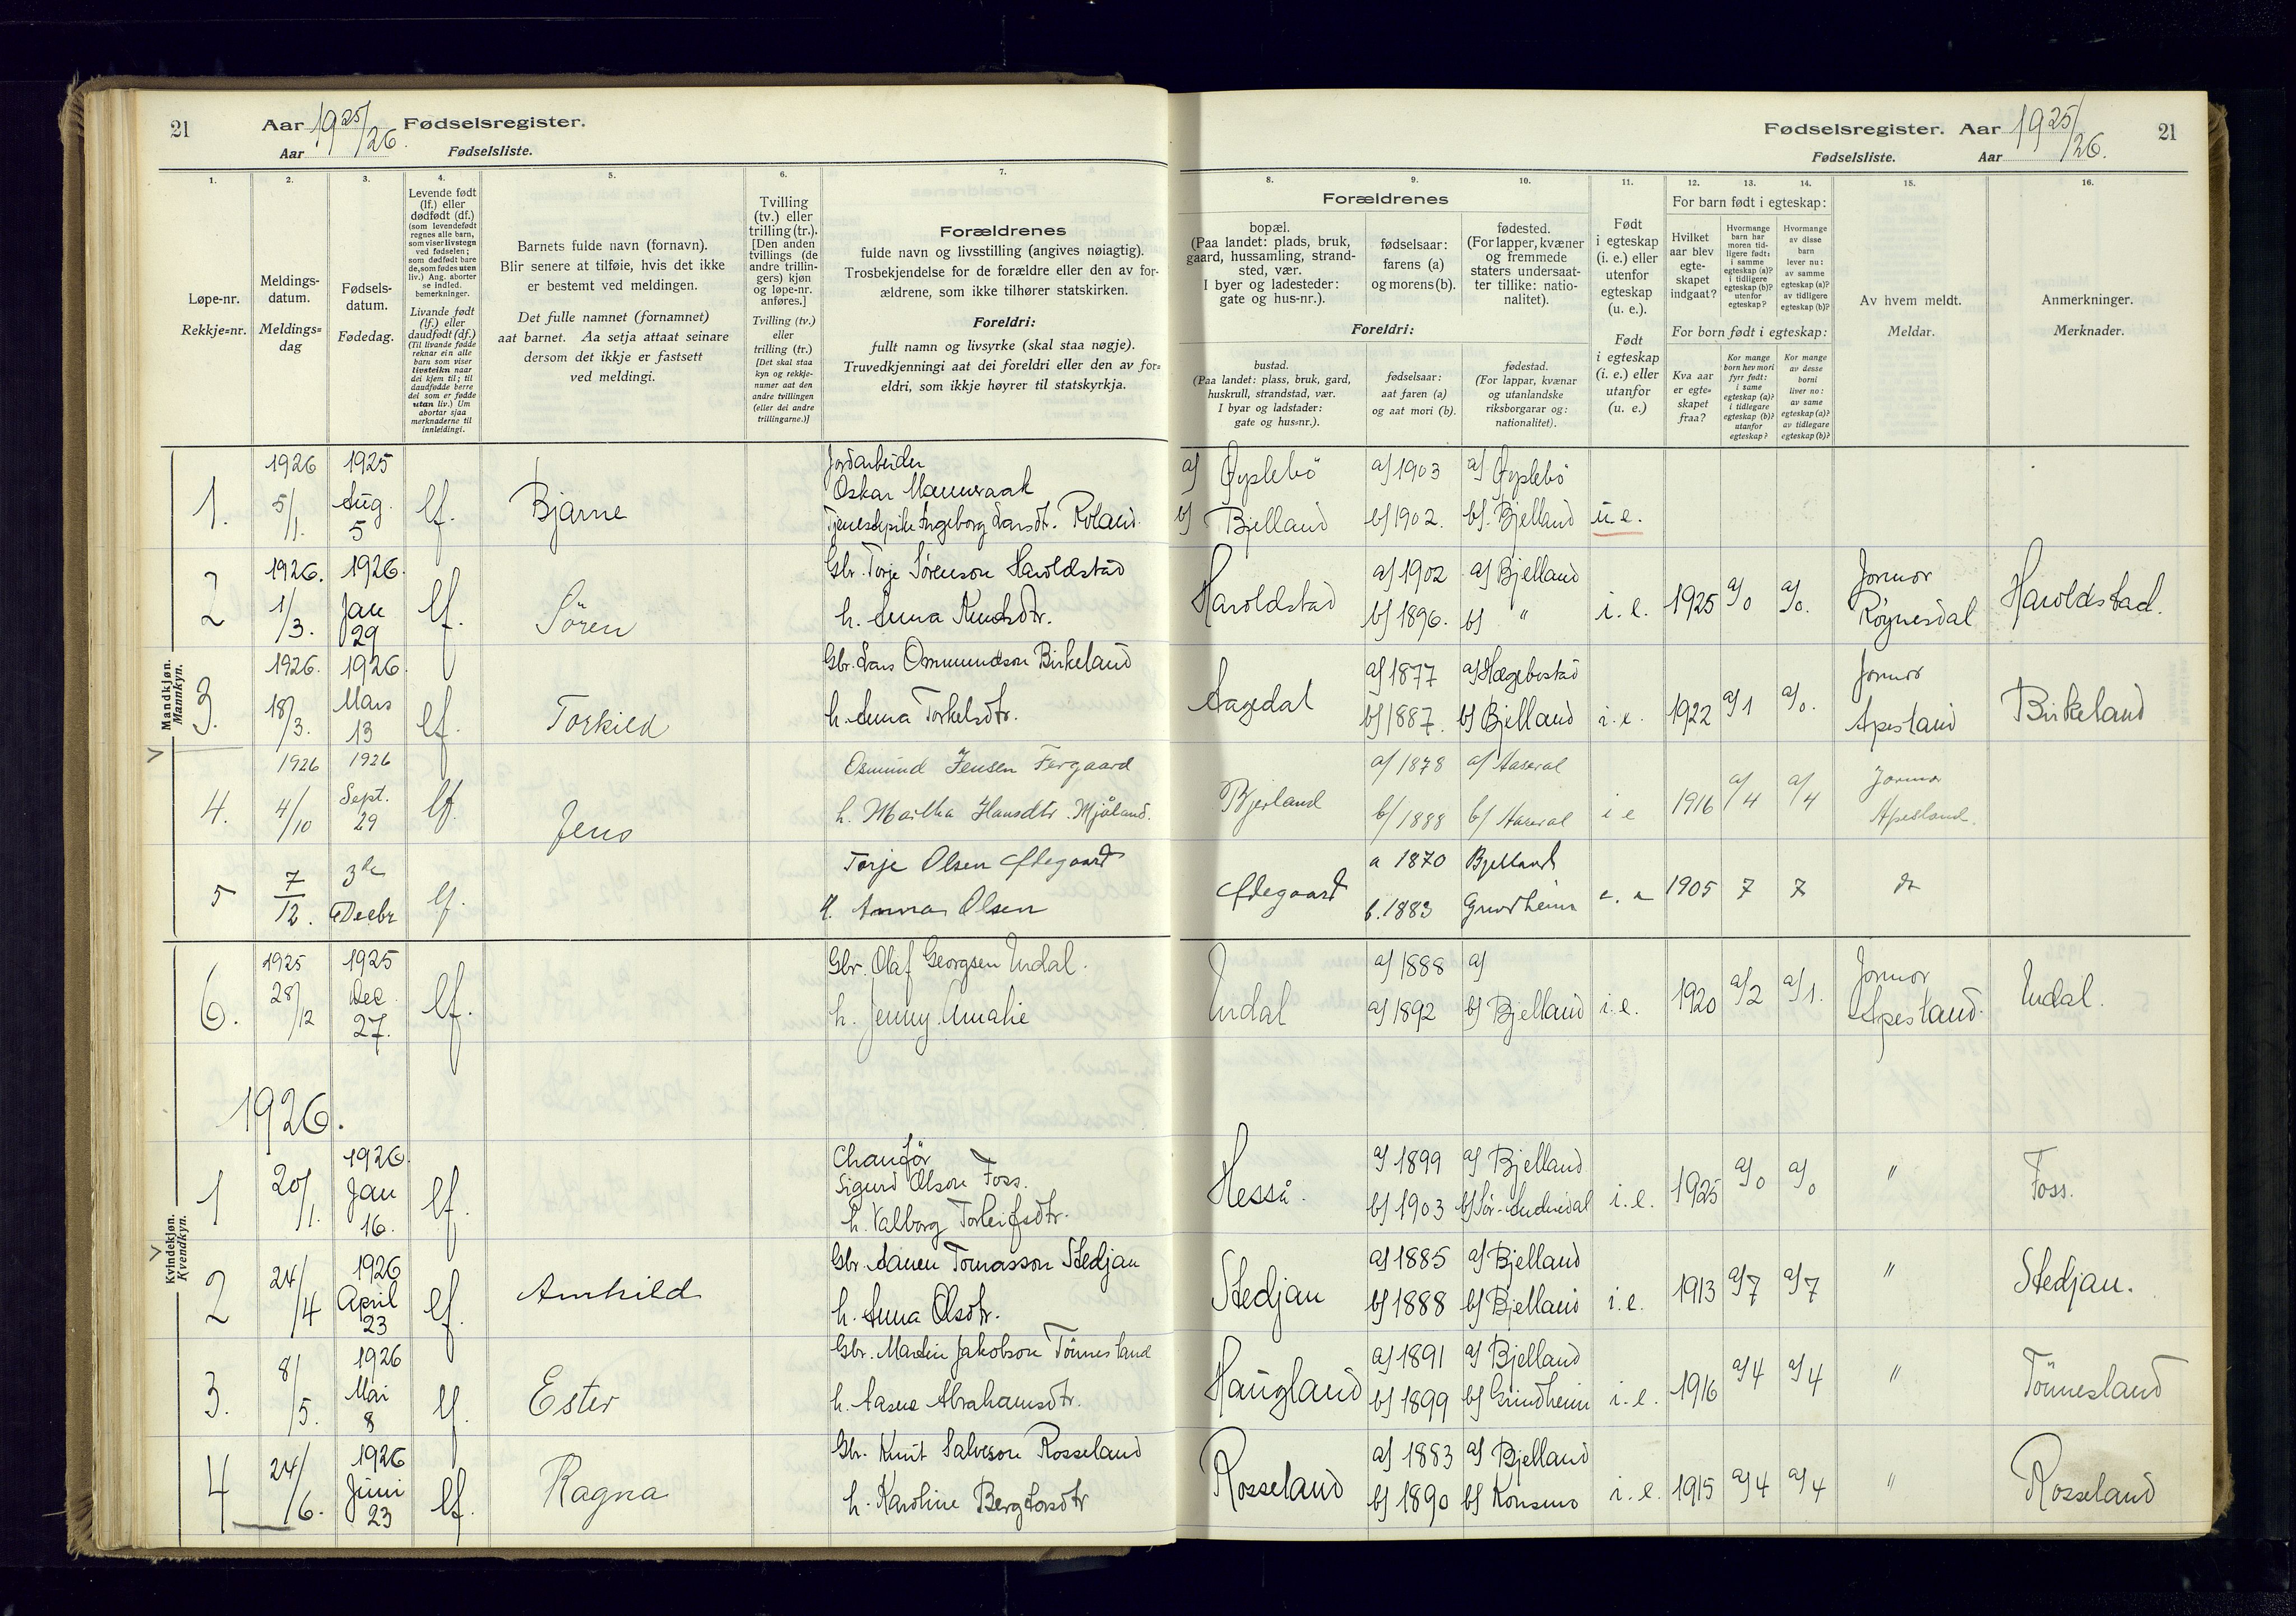 21
Aar 1925/26. Fødselsregister.
Aar Fødselsliste.
Fødselsregister. Aar 1925/26.
Fødselsliste. Aar
21
1. 2. 3. 4. 5. 6. 7.
Løpe-nr.
Rekkje=nr.
Meldings-
datum.
Meldings=
dag
Fødsels-
datum.
Fødedag.
Levende født
(lf.) eller
dødfødt (df.)
(som levendefødt
regnes alle barn,
som viser livstegn
ved fødselen;
som dødfødt bare
de, som fødes uten
liv.) Ang. aborter
se indled.
bemerkninger.
Livande født
(lf.) eller
daudfødt (df.)
(Til livande fødde
reknar ein alle
barn som viser
livsteikn naar
dei kjem til; til
daudfødde berre
dei som er fødde
utan liv.) Um
abortar sjaa
merknaderne til
innleidingi.
Barnets fulde navn (fornavn).
Blir senere at tilføie, hvis det ikke
er bestemt ved meldingen.
Det fulle namnet (fornamnet)
aat barnet. Aa setja attaat seinare
dersom det ikkje er fastsett
ved meldingi.
Tvilling
(tv.) eller
trilling (tr.).
[Den anden
tvillings (de
andre trillin-
gers) kjøn
og løpe-nr.
anføres.]
Tvilling (tv.)
eller
trilling (tr.)
[Det skal staa
kyn og rekkje-
numer aat den
andre tvillingen
(eller dei andre
trillingarne.)]
Forældrenes
fulde navn og livsstilling (angives nøiagtig).
Trosbekjendelse for de forældre eller den av for-
ældrene, som ikke tilhører statskirken.
Foreldri:
fullt namn og livsyrke (skal staa nøgje).
Truvedkjenningi aat dei foreldri eller den av for=
eldri, som ikkje høyrer til statskyrkja.
8. 9. 10. 11. 12. 13. 14. 15. 16.
Forældrenes
bopæl.
(Paa landet: plads, bruk,
gaard, hussamling, strand-
sted, vær.
I byer og ladesteder:
gate og hus-nr.).
fødselsaar:
farens (a)
og morens (b).
fødested.
(For lapper, kvæner
og fremmede
staters undersaat-
ter tillike: natio-
nalitet).
Foreldri:
bustad.
(Paa landet: plass, bruk, gard,
huskrull, strandstad, vær.
I byar og ladstader:
gate og hus=nr.).
fødselsaar:
aat faren (a)
og aat mori (b).
fødestad.
(For lappar, kvænar
og utanlandske
riksborgarar og:
nationalitet).
Født
i egteskap
(i. e.) eller
utenfor
egteskap
(u. e.).
Født
i egteskap
(i. e.) eller
utanfor
(u. e.).
For barn født i egteskap:
Hvilket
aar blev
egte-
skapet
indgaat?
Hvormange
barn har
moren tid-
ligere født:
i samme
egteskap (a)?
i tidligere
egteskap (b)?
utenfor
egteskap?
Hvormange
av disse
barn
lever nu:
av samme
egteskap (a)?
av tidligere
egteskap (b)?
For born født i egteskap:
Kva aar
er egte-
skapet
fraa?
Kor mange
born hev mori
fyrr født:
i same
egteskap (a)?
i tidlegare
egteskap (b)?
utanfor
egteskap?
Kor mange
av desse
borni
liver no:
av same
egteskap (a)?
av tidlegare
egteskap (b)?
Av hvem meldt.
Meldar.
Anmerkninger.
Merknader.
Mandkjøn.
Mannkyn.
1. 1926 5/1. 1925 Aug. 5 lf. Bjarne
Jordarbeider
Oskar Mannsaak
Tjenestepike Ingeborg Larsdt. Roland.
a) Øyslebö a) 1903 a) Øyslebö
b) Bjelland b) 1902. b) Bjelland u. e.
2 1926. 1/3. 1926. Jan 29 lf. Sören
Gbr. Torje Sørenson Haroldstad
h. Anna Knudsdtr.
Haroldstad a) 1902 b) 1896. a) Bjelland b) " i. e. 1925 a/0 a/0. Jormor Røynesdal Haroldstad.
3. 1926. 18/3. 1926. Mars 13 lf. Torkild
Gbr. Lars Ommundson Birkeland
h. Anna Torkelsdtr.
Aagedal a) 1877 b) 1887. a) Hægebostad b) Bjelland i. e. 1922 a/1 a/0. Jormor Apesland Birkeland
4. 1926 4/10 1926 Sept. 29 lf. Jens
Osmund Jensen Fergaard
h. Martha Hansdtr. Mjåland.
Bjerland a/ 1878 b/ 1888 a/ Aaseral b/ Aaseral i e 1916 a/4 a/4 Jormor Apesland.
5 7/12. 3de Decbr lf.
Torje Olsen Ødegaard
H. Anna Olsen
Ødegaard a 1870 b. 1883 Bjelland Grindheim 1905 7 7 do
Kvindekjøn.
Kvendkyn.
6. 1925 28/12 1925 Dec. 27. lf.
Gbr. Olaf Georgsen Undal.
h. Jenny Amalie
Undal a) 1888 a) 1892 a) b) Bjelland i. e. 1920 a/2 a/1. Jormor Apesland. Undal.
1926.
1 20/1. 1926. Jan 16. lf.
Chaufør
Sigurd Olson Foss.
h. Valborg Torleifsdtr.
Hesså. a) 1899 b) 1903 a) Bjelland b) Sør-Audnedal i. e. 1925 a/0 a/0 " Foss.
2 24/4 1926 April 23 lf. Arnhild
Gbr. Aanen Tomasson Stedjan
h. Anna Olsdtr.
Stedjan a) 1885 b) 1888 a) Bjelland b) Bjelland i. e. 1913 a/7 a/7 " Stedjan.
3. 8/5. 1926 Mai 8 lf. Ester
Gbr. Martin Jakobson Tönnesland
h. Aasne Abrahamsdtr.
Haugland a) 1891 b) 1899 a) Bjelland b) Grindheim i. e. 1916 a/4 a/4 " Tönnesland
4 24/6. 1926 Juni 23 lf. Ragna
Gbr. Knut Salveson Rosseland
h. Karoline Bergtorsdtr
Rosseland a) 1883 b) 1890 a) Bjelland b) Konsmo i. e. 1915 a/4 a/4 " Rosseland